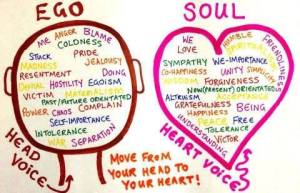 EGO
ME ANGER BLAME
COLDNESS
STACK PRIDE
MADNESS JEALOUSY
RESENTMENT DOING
DENIAL HOSTILITY EGOISM
VICTIM MATERIALISM
PAST/FUTURE ORIENTATED
POWER CHAOS COMPLAIN
SELF-IMPORTANCE
INTOLERANCE
WAR SEPARATION
HEAD VOICE
SOUL
WE HUMBLE FRIENDLINESS
LOVE SPIRITUAL
SYMPATHY WE-IMPORTANCE
CO-HAPPINESS UNITY SIMPLICITY
WISDOM FORGIVENESS
NOW (PRESENT) ORIENTATED
ALTRUISM ACCEPTANCE
GRATEFULNESS
HAPPINESS BEING
PEACE FREE
TOLERANCE
UNDERSTANDING VICTOR
HEART VOICE
MOVE FROM
YOUR HEAD TO
YOUR HEART!